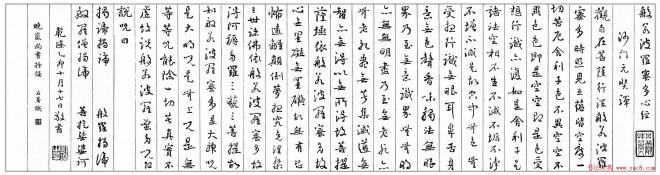 般若波羅蜜多心經
沙門元奘譯
觀自在菩薩行深般若波羅
蜜多時照見五蘊皆空度一
切苦厄舍利子色不異空空不
異色色即是空空即是色受
想行識亦復如是舍利子是
諸法空相不生不滅不垢不淨
不增不減是故空中無色無
受想行識無眼耳鼻舌身
意無色聲香味觸法無眼
界乃至無意識界無無明亦
無無明盡乃至無老死亦
無老死盡無苦集滅道無
智亦無得以無所得故菩提
薩埵依般若波羅蜜多故
心無罣礙無罣礙故無有恐
怖遠離顛倒夢想究竟涅槃
三世諸佛依般若波羅蜜多故
得阿耨多羅三藐三菩提故
知般若波羅蜜多是大神咒
是大明咒是無上咒是無
等等咒能除一切苦真實不
虛故說般若波羅蜜多咒即
說咒曰
揭諦揭諦 般羅揭諦
般羅僧揭諦 菩提薩婆訶
乾隆乙卯十月十七日敬書
晚嵐尚書持誦 石菴識